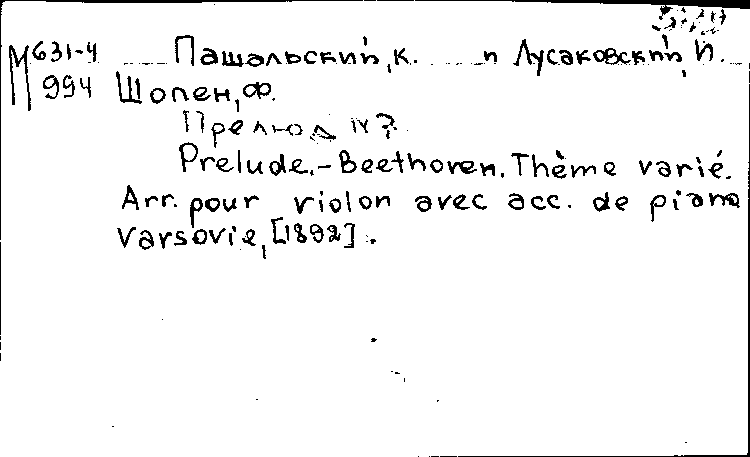 М 631-4 Пашальский, К. и Лусаковский, И.
994 Шопен, Ф.
Прелюд IV?
Prelude. - Beethoven. Thème varié.
Arr. pour violon avec acc. de piano
Varsovie, [1892].